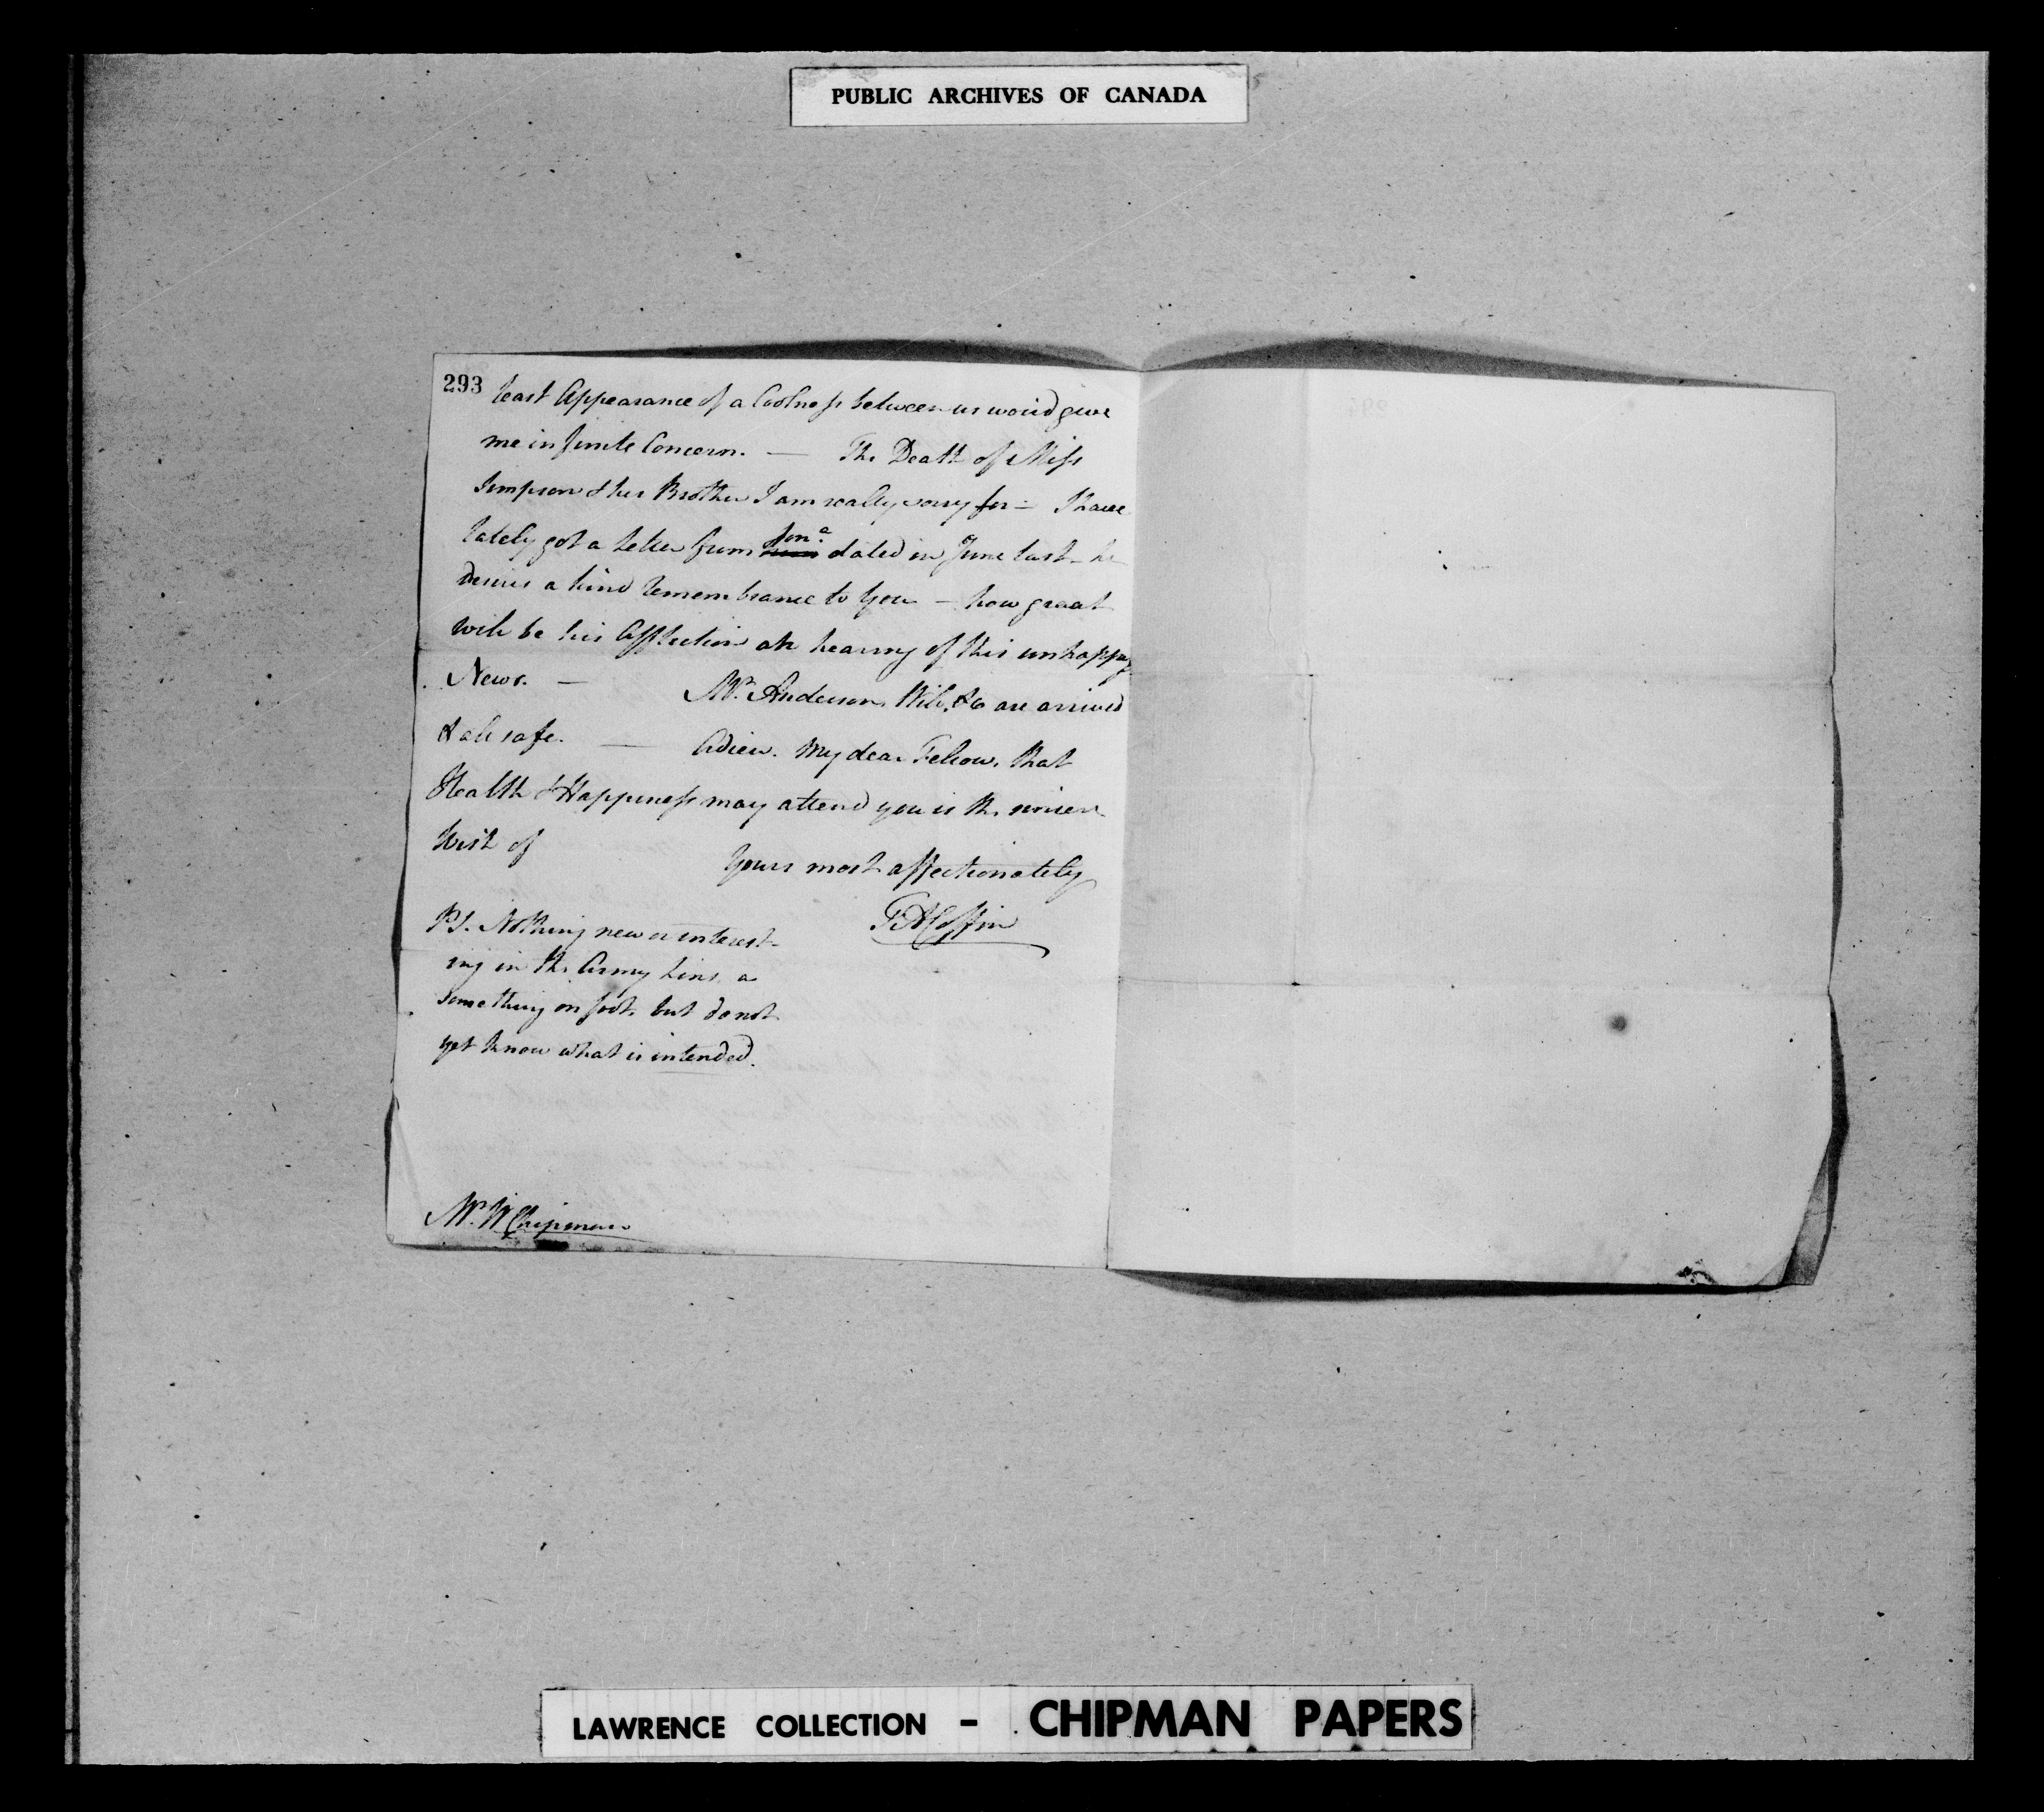 PUBLIC ARCHIVES OF CANADA
293
least Appearance of a Coolness between us would give
me infinite Concern. — The Death of Miss
Simpson & her Brother I am really sorry for — I have
lately got a Letter from Jon.a dated in June last - he
desires a kind remembrance to you — how great
will be his Affliction on hearing of this unhappy
News. — Mr. Anderson, &c are arrived
& all safe. — Adieu. My dear Fellow. that
Health & Happiness may attend you is the sincere
Wish of
Yours most affectionately
TACoffin
PS. Nothing new or interest-
ing in the Army Line, a
something on foot, but do not
yet know what is intended.
Mr. W Chipman
LAWRENCE COLLECTION - CHIPMAN PAPERS